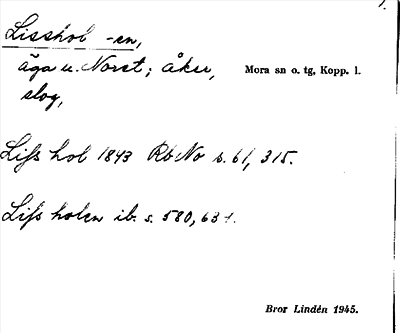 1.
Lisshol -en,
äga u. Noret; åker, Mora sn o. tg, Kopp. l.
slog,
Lifs hol 1843 Rb No s. 61, 315.
Lifs holen ib. s. 580, 631.
Bror Lindén 1945.